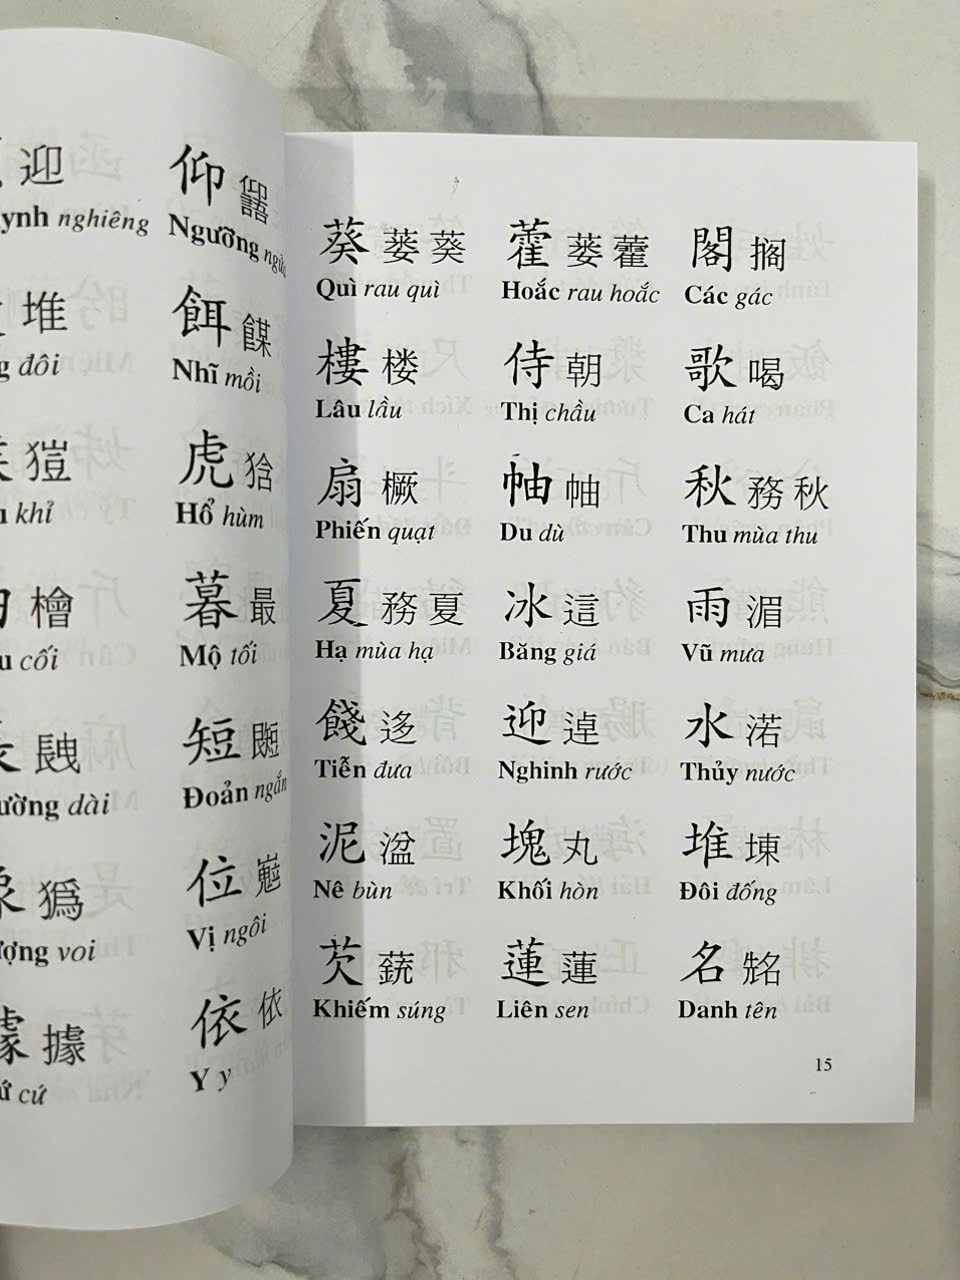 迎 仰 𠑕
ynh nghiêng Ngưỡng
堆 餌
đôi Nhĩ mồi
虎
khỉ Hổ hùm
檜 暮 最
cối Mộ tối
短
ường dài Đoản ngắn
位
ợng voi Vị ngôi
據 依 依
cứ Y y
葵 蔞 葵 藿 蔞 藿 閣 擱
Quì rau quì Hoắc rau hoắc Các gác
樓 楼 侍 朝 歌 喝
Lâu lầu Thị chầu Ca hát
扇 橛 帕 秋 務 秋
Phiến quạt Du dù Thu mùa thu
夏 務 夏 冰 這 雨 湄
Hạ mùa hạ Băng giá Vũ mưa
餞 迻 迎 逴 水 渃
Tiễn đưa Nghinh rước Thủy nước
泥 湓 塊 丸 堆 堜
Nê bùn Khối hòn Đôi đống
芡 銃 蓮 蓮 名
Khiếm súng Liên sen Danh tên
15